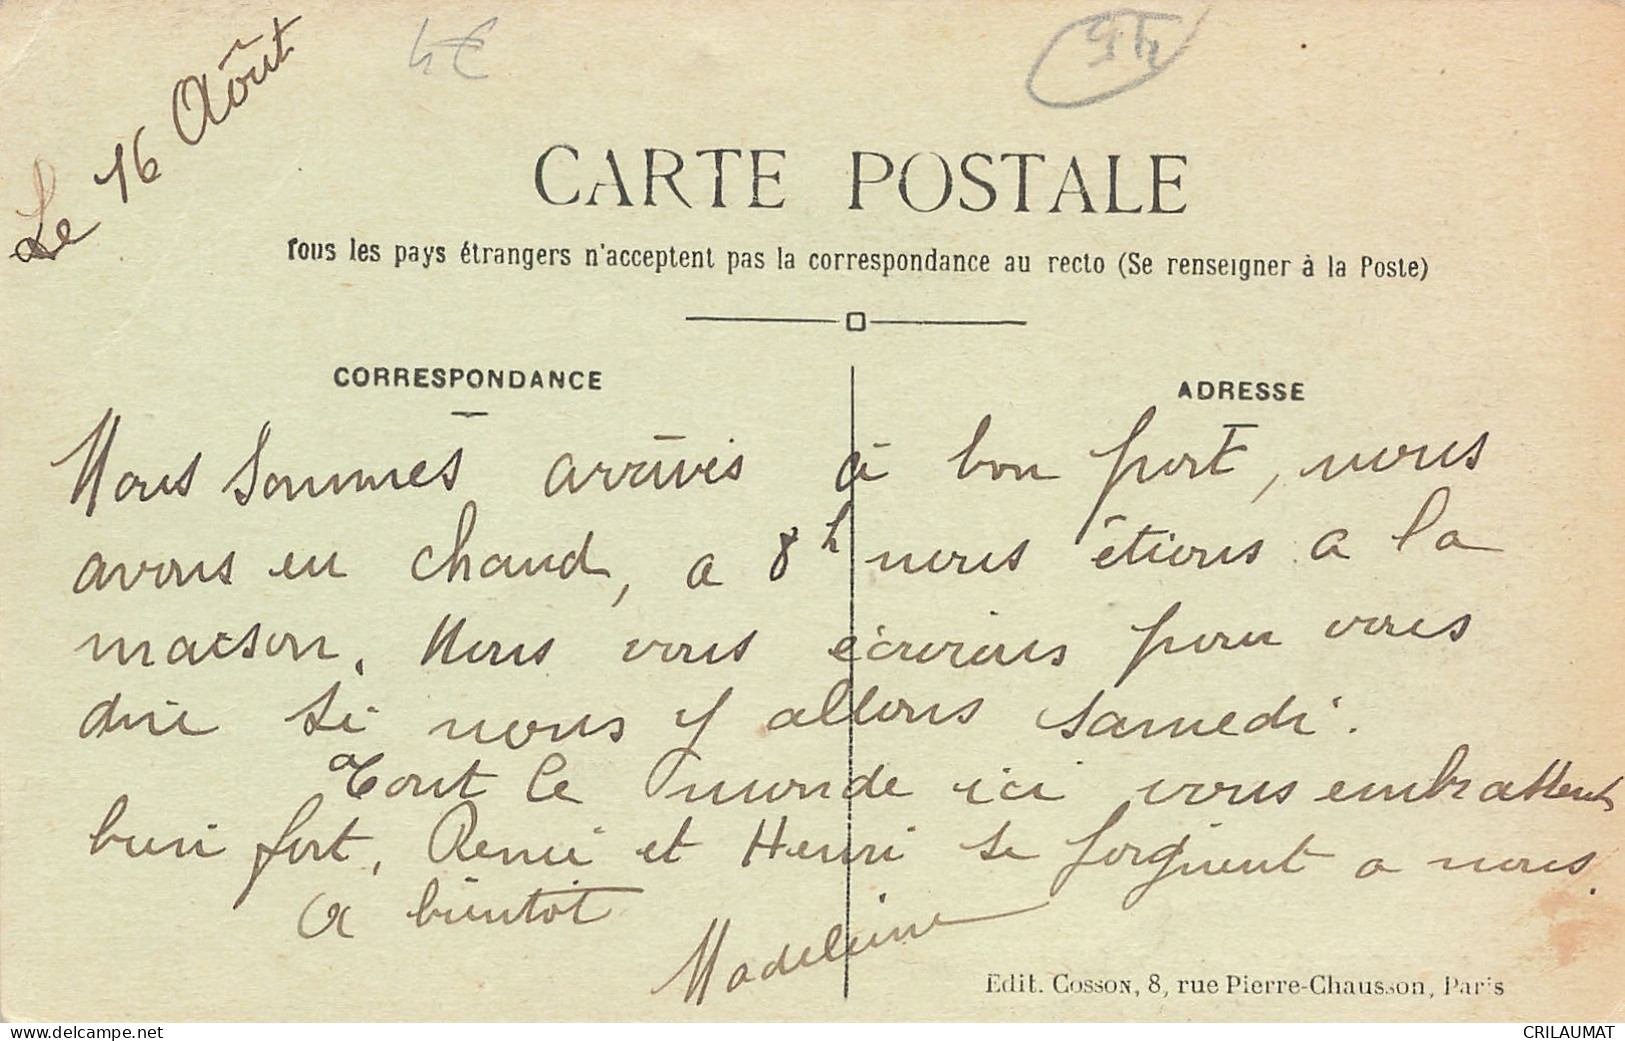 Le 16 Aôut
4€
CARTE POSTALE
Tous les pays étrangers n'acceptent pas la correspondance au recto (Se renseigner à la Poste)
CORRESPONDANCE
ADRESSE
Nous sommes arrivés à bon port, nous
avons eu chaud, a 8h nous étions a la
maison. Nous vous écrirons pour vous
dire si nous y allons samedi.
Tout le monde ici vous embrassent
bien fort, Renée et Henri se joignent a nous.
A bientôt
Madeleine
Edit. COSSON, 8, rue Pierre-Chausson, Paris
www.delcampe.net
CRILAUMAT